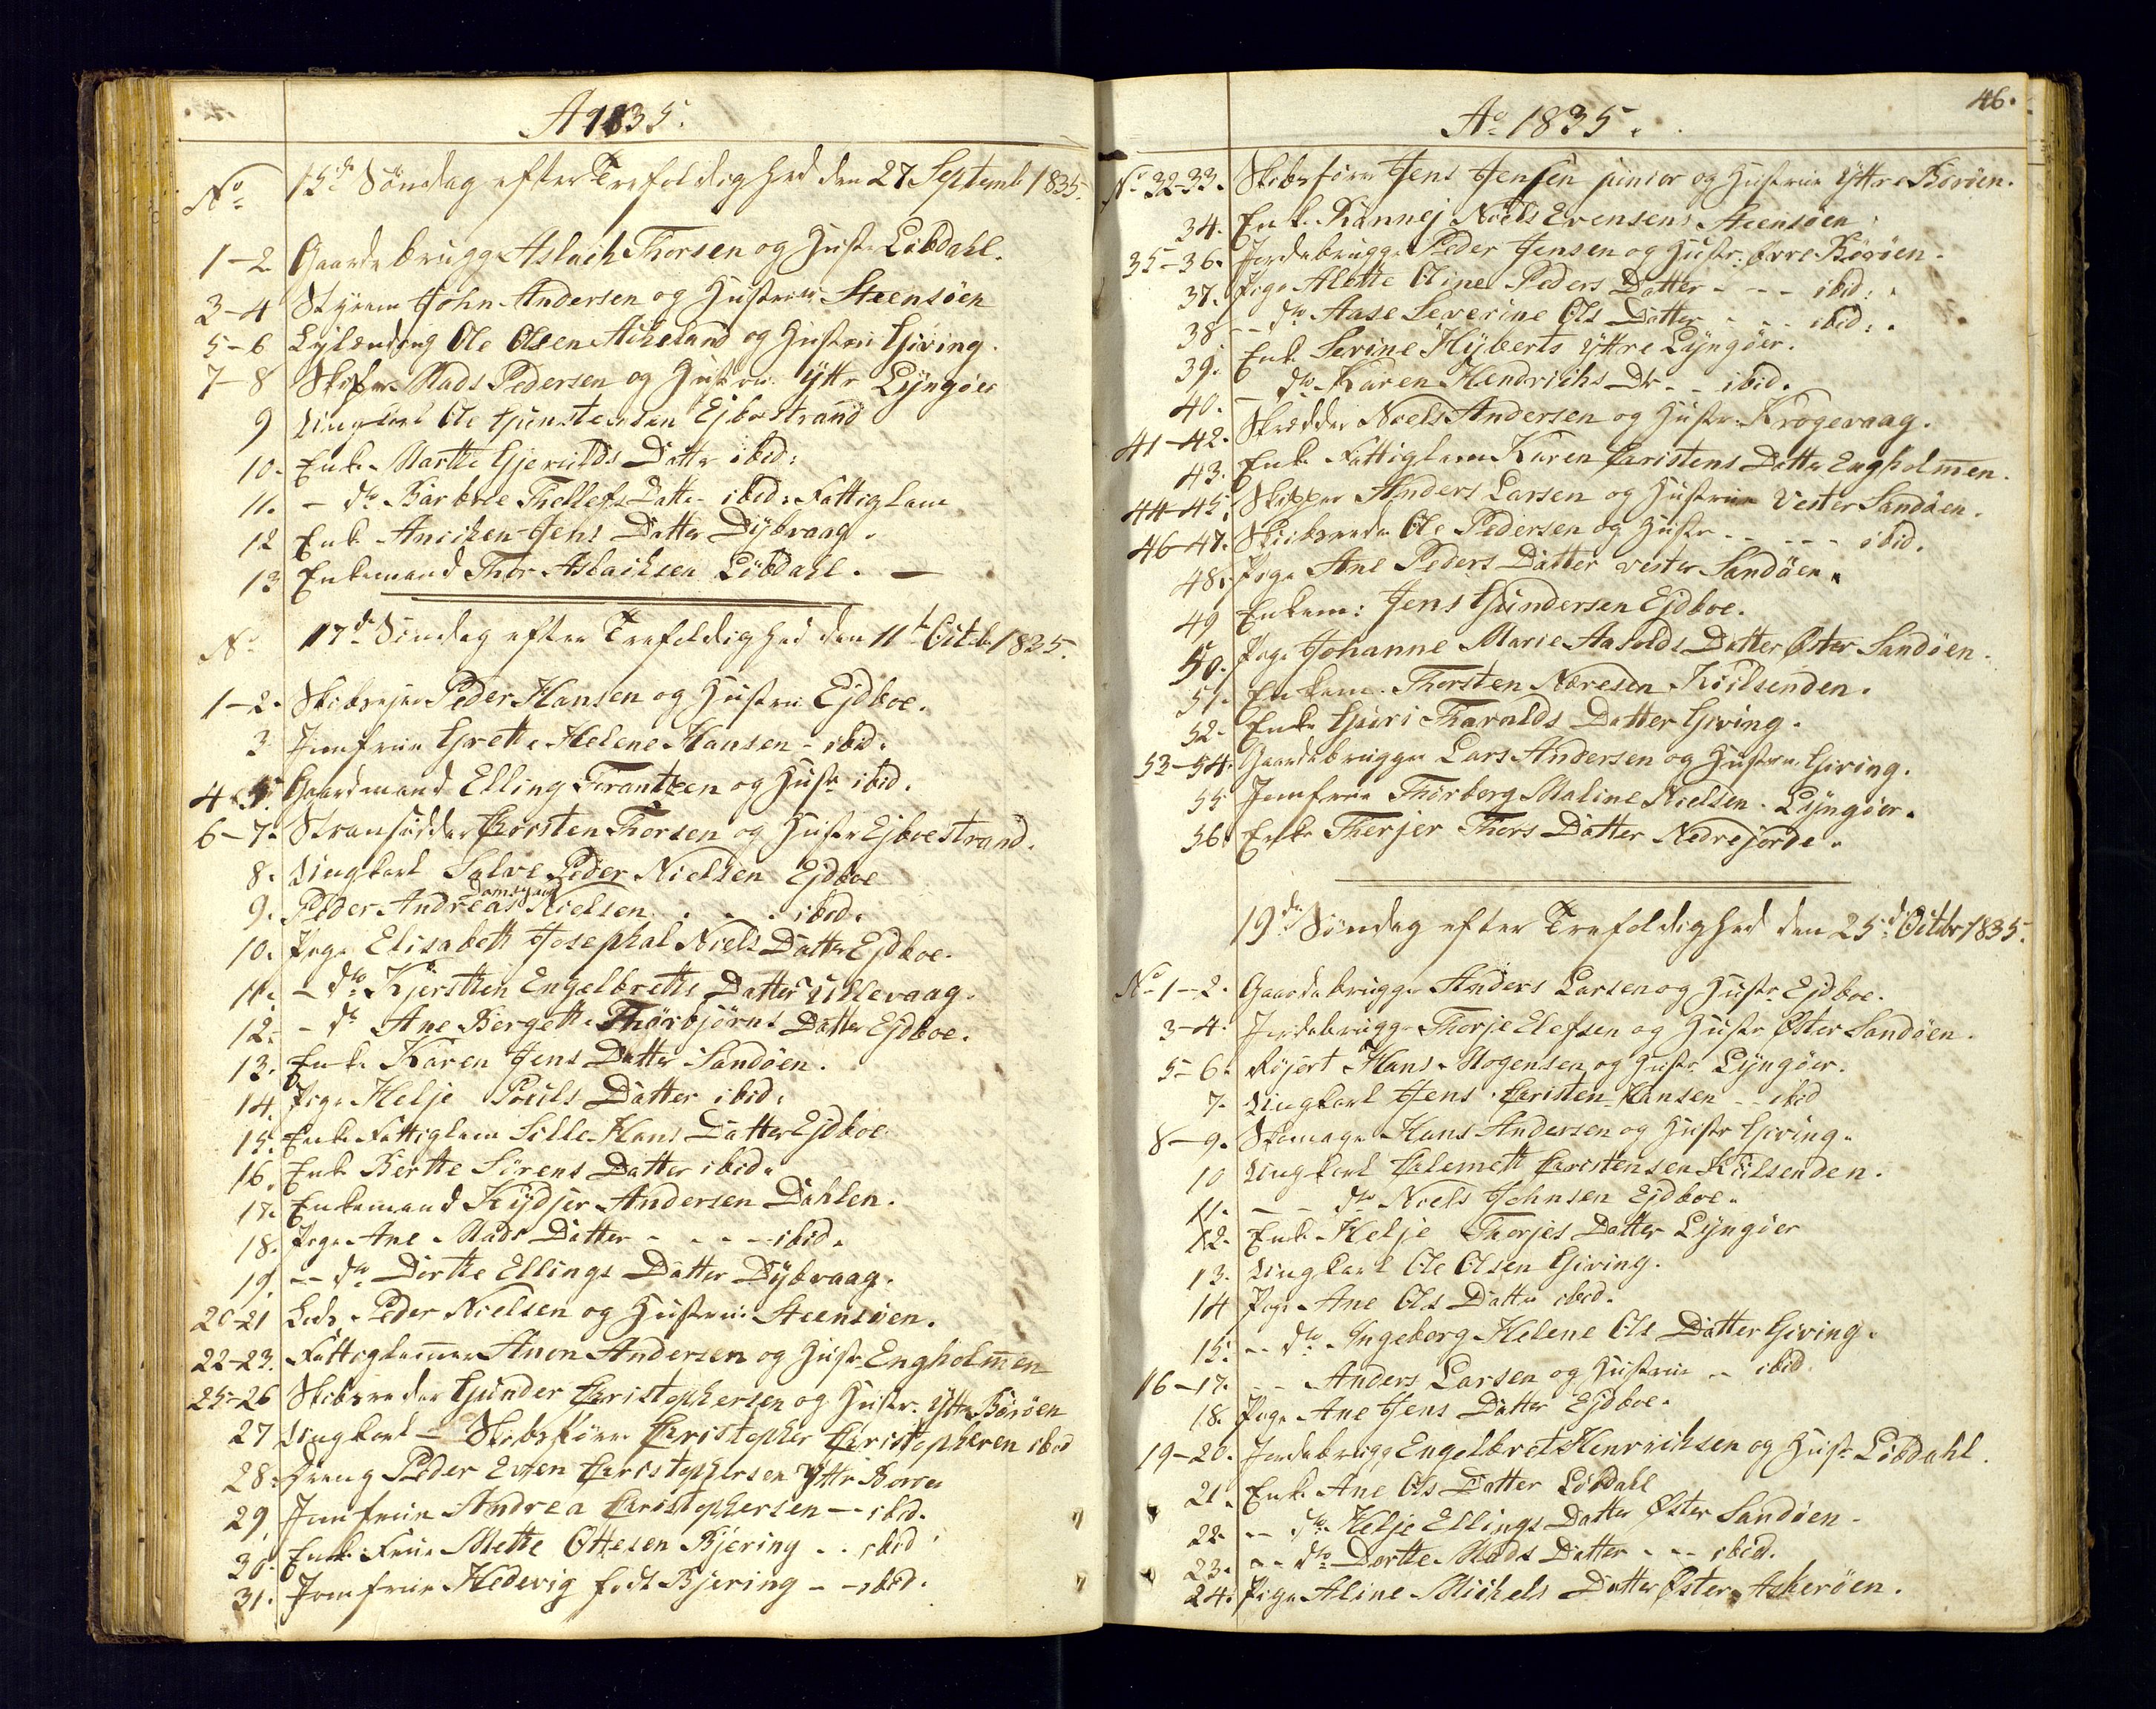 A 1835.
No 15de Søndag efter Trefoldighed den 27 Septemb 1835.
1-2 Gaardebrugge Aslach Thorsen og Hustr. Løbdahl.
3-4 Styrm John Andersen og Hustrue Steensøen
5-6 Ole Olsen Askeland og Hustrue Giving.
7-8 Skipper Mads Pedersen og Hustrue Yttr Lyngøer
9 Ungkarl Ole Gunstensen Ejboestrand
10. Enke Marthe Gjeruldsd Datter ibid:
11. - do Barbroe Thellefs Datter ibid: Fattiglem
12 Enke Anichen Jens Datter Dybvaag.
13 Enkemand Thor Aslachsen Löbdahl. —
No 17de Søndag efter Trefoldighed den 11te Octob 1835.
1-2. Skibsejer Peder Hansen og Hustrue Ejdboe.
3 Jomfrue Grethe Helene Hansen - ibid.
4-5. Gaardmand Elling Frantzen og Hustr ibid.
6-7. Strandsidder Chorsten Thorsen og Hustr Ejboestrand.
8. Ungkarl Salve Peder Nielsen Ejdboe
9. Peder Andreas Damsgaard Nielsen . . . ibid.
10. Pige Elisabeth Josephal Niels Datter Ejdboe.
11. - do Kjersthen Engelbreths Datter Ullevaag.
12. - do Ane Bergethe Thorbjørns Datter Ejdboe.
13. Enke Karen Jens Datter Sandøen.
14. Pige Helje Pouls Datter ibid.
15. Enke Fattiglem Sille Hans Datter Ejdboe
16. Enke Berthe Sørens Datter ibid.
17. Enkemand Kydjer Andersen Dahlen.
18. Pige Ane Mads Datter - - - ibid.
19. -- do Dorthe Ellings Datter Dybvaag.
20-21 Lods Peder Nielsen og Hustrue Steensöen.
22-23. Fattiglemmer Anon Andersen og Hustr. Engholmen
25-26 Skibsreder Gunder Christophersen og Hustr. Yttr Börøen
27 Ungkarl - Skibsfører Christopher Christophersen ibid
28. Dreng Peder Even Christophersen Yttr Borøen
29 Jomfrue Andrea Christophersen — ibid.
30. Enke Frue Mette Ottesen Bjering . . ibid
31. Jomfrue Hedevig født Bjering - - ibid.
46.
Ao 1835.
No 32-33. Skibsfører Jens Jensen junior og Hustrue Yttre Börøen.
34. Enke Rannej Niels Evensens Steensøen
35-36. Jordebrugge Peder Jensen og Hustr. Øvre Börøen.
37. Pige Alette Oline Peders Datter - - - ibid:
38 -- do Aase Severine Ols Datter - - - ibid:
39. Enke Serine Hyberts Yttre Lyngøer.
40. - do Karen Hendrichs Dr. - - ibid.
41-42. Skrædder Niels Andersen og Hustr Krogevaag.
43. Enke Fattiglem Karen Christens Datter Engholmen.
44-45. Skipper Anders Larsen og Hustrue Vester Sandøen.
46-47. Skibsreder Ole Pedersen og Hustr - - - - - ibid.
48. Pige Ane Peders Datter vester Sandøen.
49 Enkem: Jens Gundersen Ejdboe.
50. Pige Johanne Marie Aasolds Datter Øster Sandøen.
51. Enkem. Thorsten Næresen Kiilsenden.
52. Enke Guri Tharalds Datter Giving.
53-54. Gaardebrugger Lars Andersen og Hustrue Giving.
55 Jomfrue Thorborg Maline Nielsen . Lyngøer.
56. Enke Therjer Thors Datter Nedrejorde.
19de Søndag efter Trefoldighed den 25de Octbr 1835.
No 1-2. Gaardebrugge Anders Larsen og Hustr. Ejdboe.
3-4. Jordebrugge Thorje Elefsen og Hustr Øster Sandøen.
5-6. Røjert Hans Mogensen og Hustr Lyngøer.
7. Ungkarl Jens Christen Hansen - - ibid
8-9. Skomager Hans Andersen og Hustr Giving.
10 Ungkarl Chlemett Christensen Kiilsenden.
11. - - do Niels Johnsen Ejdboe.
12. Enke Helje Thorjes Datter Lyngøer
13. Ungkarl Ole Olsen Giving.
14 Pige Ane Ols Datter ibid.
15. -- do Ingeborg Helene Ols Datter Giving.
16-17. - - Anders Larsen og Hustrue -- ibid.
18. Pige Ane Jens Datter Ejdboe.
19-20. Jordebrugg Engelbret Henrichsen og Hustr. Löbdahl.
21. Enke Ane Ols Datter Löbdahl
22. -- do Helje Ellings Datter Øster Sandøen.
23. -- do Dorthe Mads Datter - - - ibid.
24. Pige Aline Michels Datter Øster Askerøen.